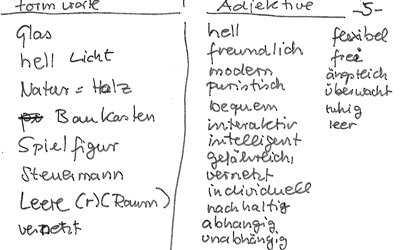 Adjektive -5-
Glas
hell Licht
Natur = Holz
Baukasten
Spielfigur
Steuermann
Leere (r) (Raum)
vernetzt
hell
freundlich
modern
puristisch
bequem
interaktiv
intelligent
gefährlich
vernetzt
individuell
nachhaltig
abhängig
unabhängig
flexibel
frei
ängstlich
überwacht
ruhig
leer